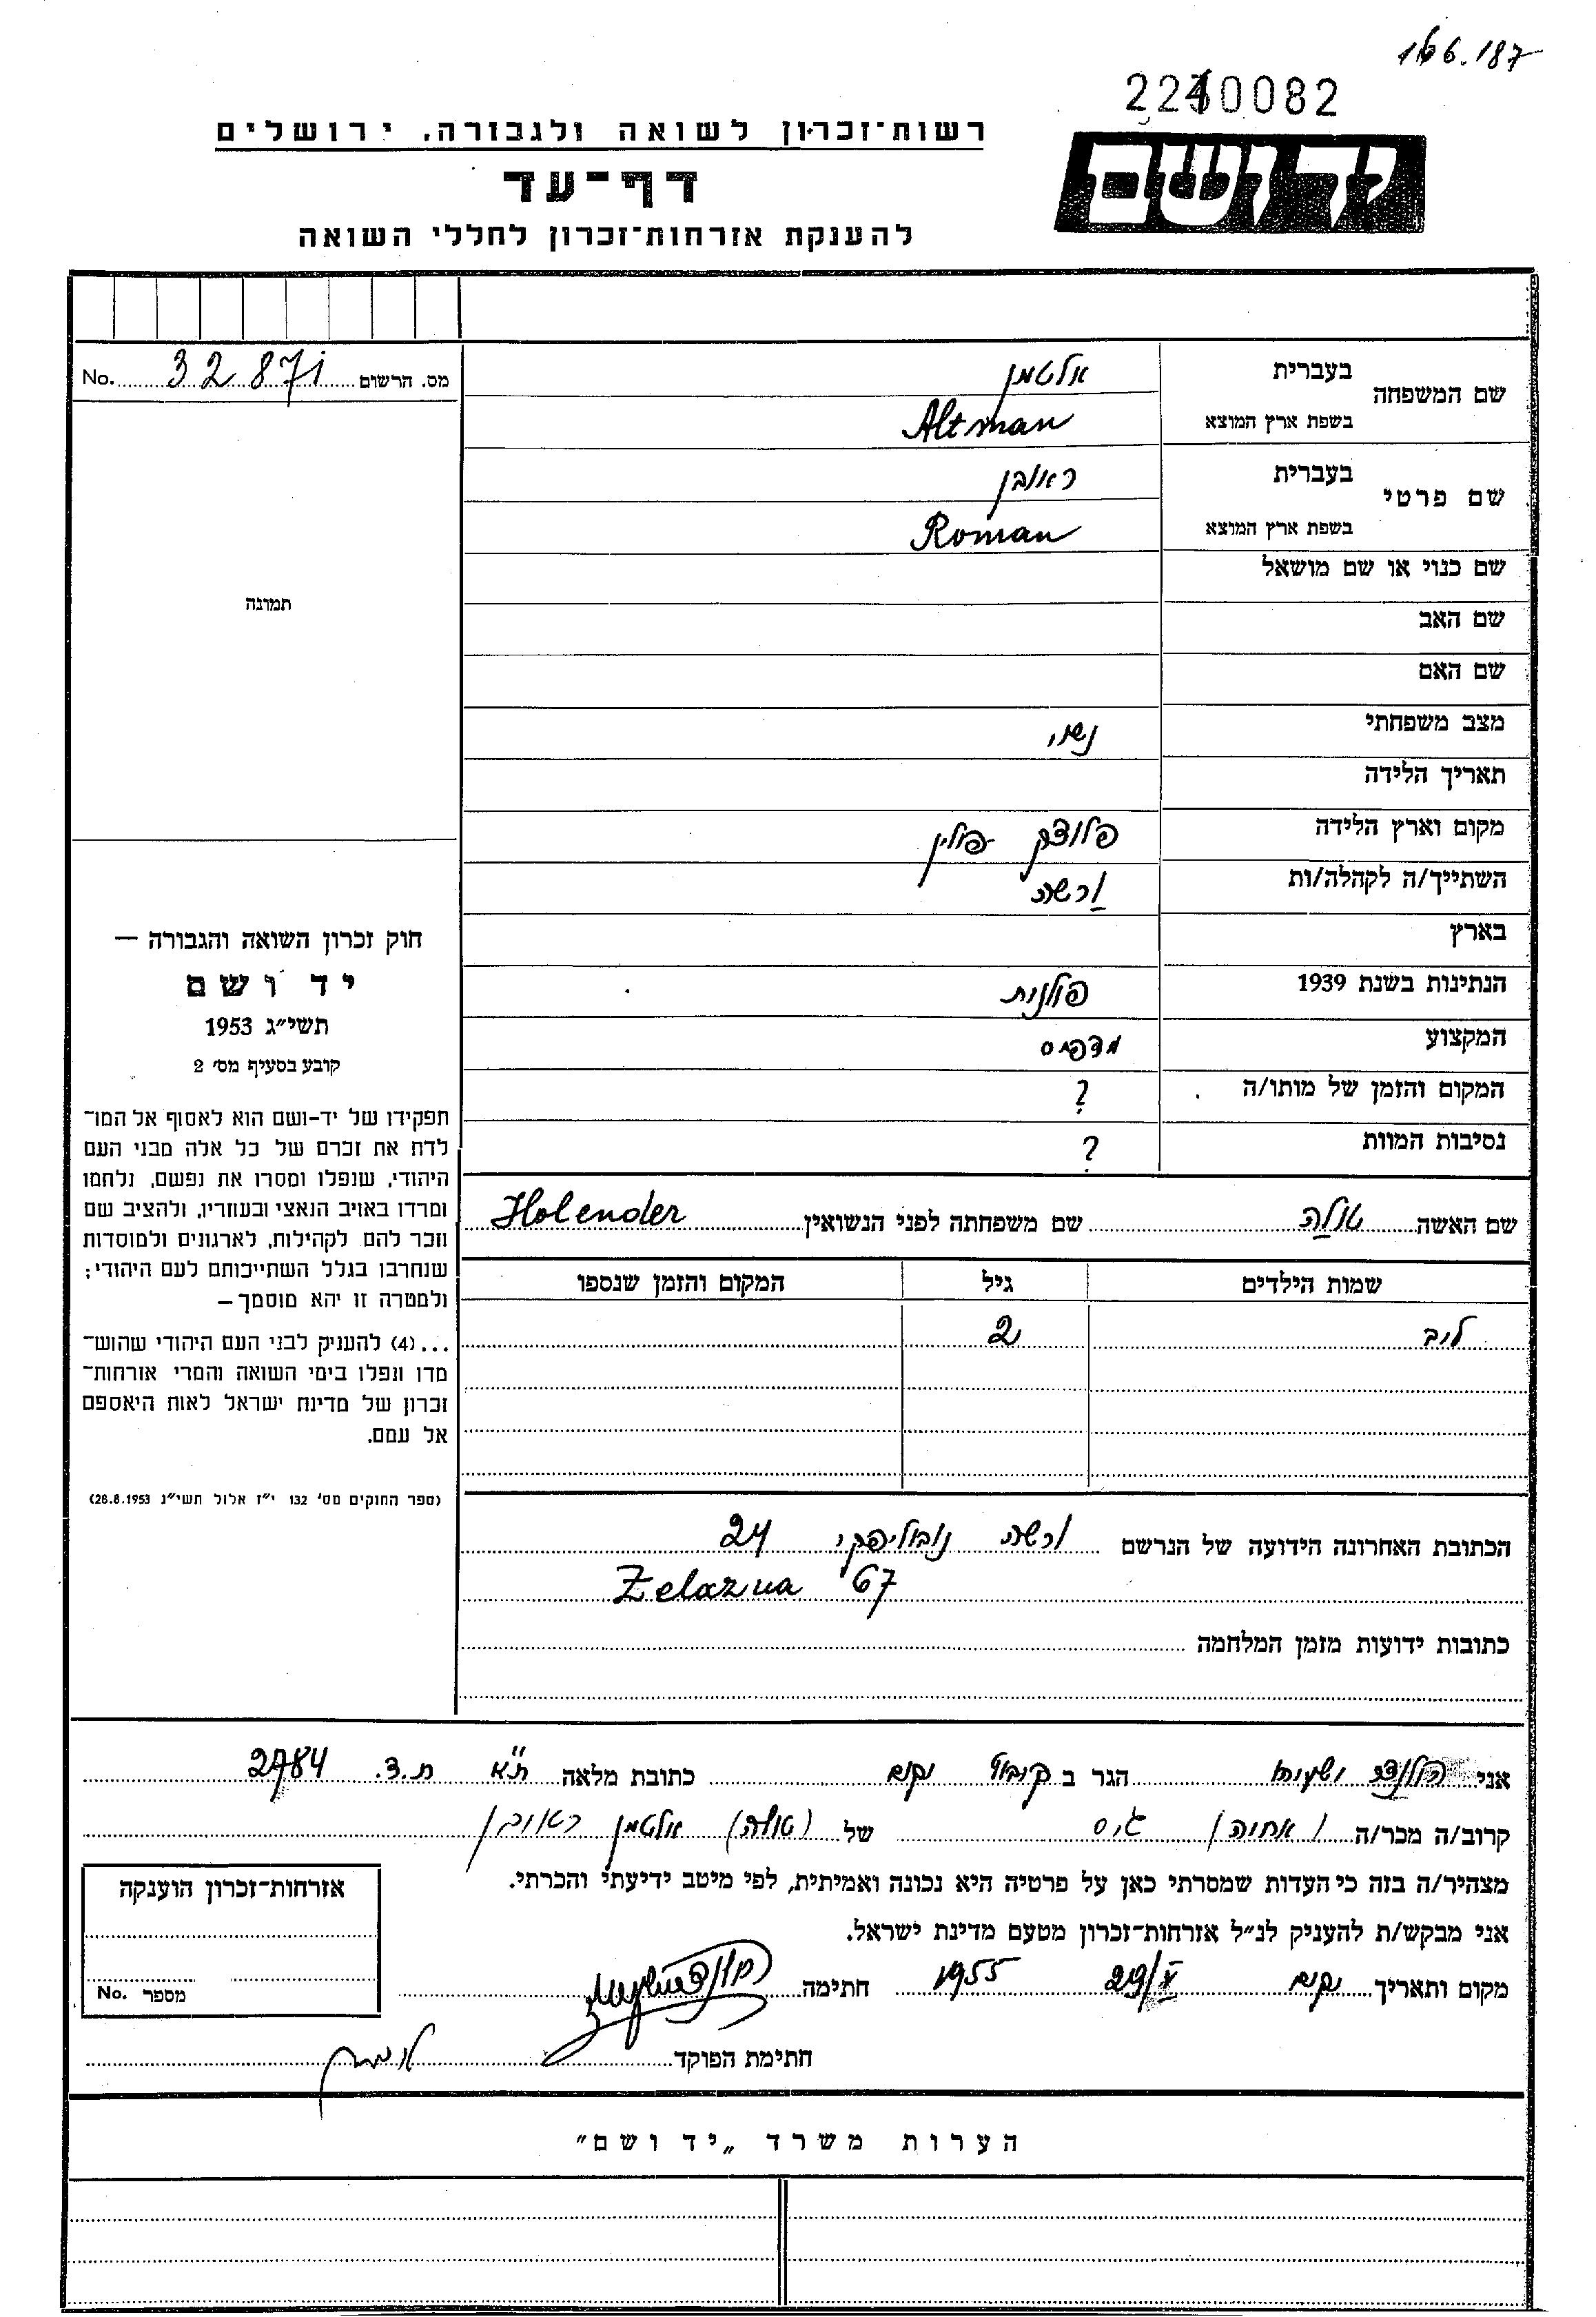 166.187
2240082
רשות־זכרון לשואה ולגבורה, ירושלים
יד ושם
דף־עד
להענקת אזרחות־זכרון לחללי השואה
מס. הרשום 32871 No.
תמונה
חוק זכרון השואה והגבורה —
יד ושם
תשי״ג 1953
קובע בסעיף מס׳ 2
תפקידו של יד-ושם הוא לאסוף אל המו־
לדת את זכרם של כל אלה מבני העם
היהודי, שנפלו ומסרו את נפשם, נלחמו
ומרדו באויב הנאצי ובעוזריו, ולהציב שם
וזכר להם לקהילות, לארגונים ולמוסדות
שנחרבו בגלל השתייכותם לעם היהודי;
ולמטרה זו יהא מוסמך–
...(4) להעניק לבני העם היהודי שהוש־
מדו ונפלו בימי השואה והמרי אזרחות־
זכרון של מדינת ישראל לאות היאספם
אל עמם.
(ספר החוקים מס׳ 132 י״ז אלול תשי״ג 28.8.1953)
שם המשפחה בעברית אלטמן
בשפת ארץ המוצא Altman
שם פרטי בעברית ראובן
בשפת ארץ המוצא Roman
שם כנוי או שם מושאל
שם האב
שם האם
מצב משפחתי נשוי
תאריך הלידה
מקום וארץ הלידה פלוצק פולין
השתייך/ה לקהלה/ות ורשה
בארץ
הנתינות בשנת 1939 פולנית
המקצוע מדפיס
המקום והזמן של מותו/ה ?
נסיבות המוות ?
שם האשה טולה שם משפחתה לפני הנשואין Holender
שמות הילדים גיל המקום והזמן שנספו
לוב 2
הכתובת האחרונה הידועה של הנרשם ורשה נובוליפקי 24
67 Zelazna
כתובות ידועות מזמן המלחמה
אני הולנדר ישעיהו הגר ב קיבוץ יקום כתובת מלאה ת"א ת.ד. 2784
קרוב/ה מכר/ה (אחיה) גיס של (טולה) אלטמן ראובן
מצהיר/ה בזה כי העדות שמסרתי כאן על פרטיה היא נכונה ואמיתית, לפי מיטב ידיעתי והכרתי.
אני מבקש/ת להעניק לנ״ל אזרחות־זכרון מטעם מדינת ישראל.
מקום ותאריך יקום 29/X 1955 חתימה
חתימת הפוקד
אזרחות־זכרון הוענקה
מספר No.
הערות משרד „יד ושם״